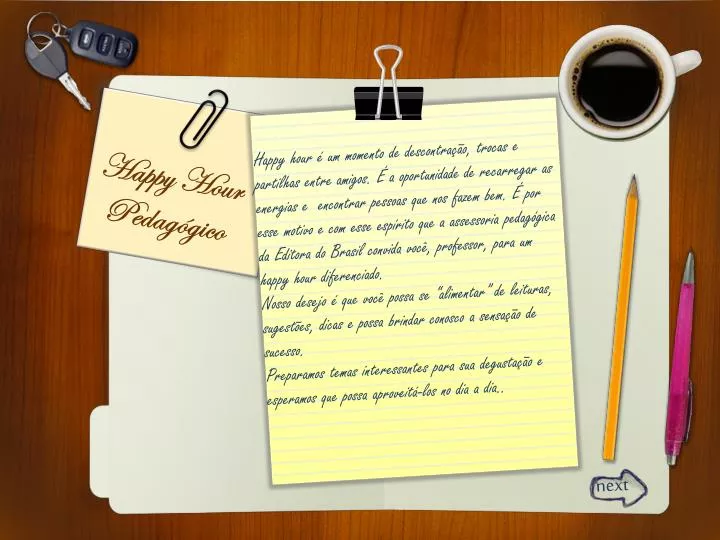 Happy Hour
Pedagógico
Happy hour é um momento de descontração, trocas e
partilhas entre amigos. É a oportunidade de recarregar as
energias e encontrar pessoas que nos fazem bem. É por
esse motivo e com esse espírito que a assessoria pedagógica
da Editora do Brasil convida você, professor, para um
happy hour diferenciado.
Nosso desejo é que você possa se "alimentar" de leituras,
sugestões, dicas e possa brindar conosco a sensação de
sucesso.
Preparamos temas interessantes para sua degustação e
esperamos que possa aproveitá-los no dia a dia..
next